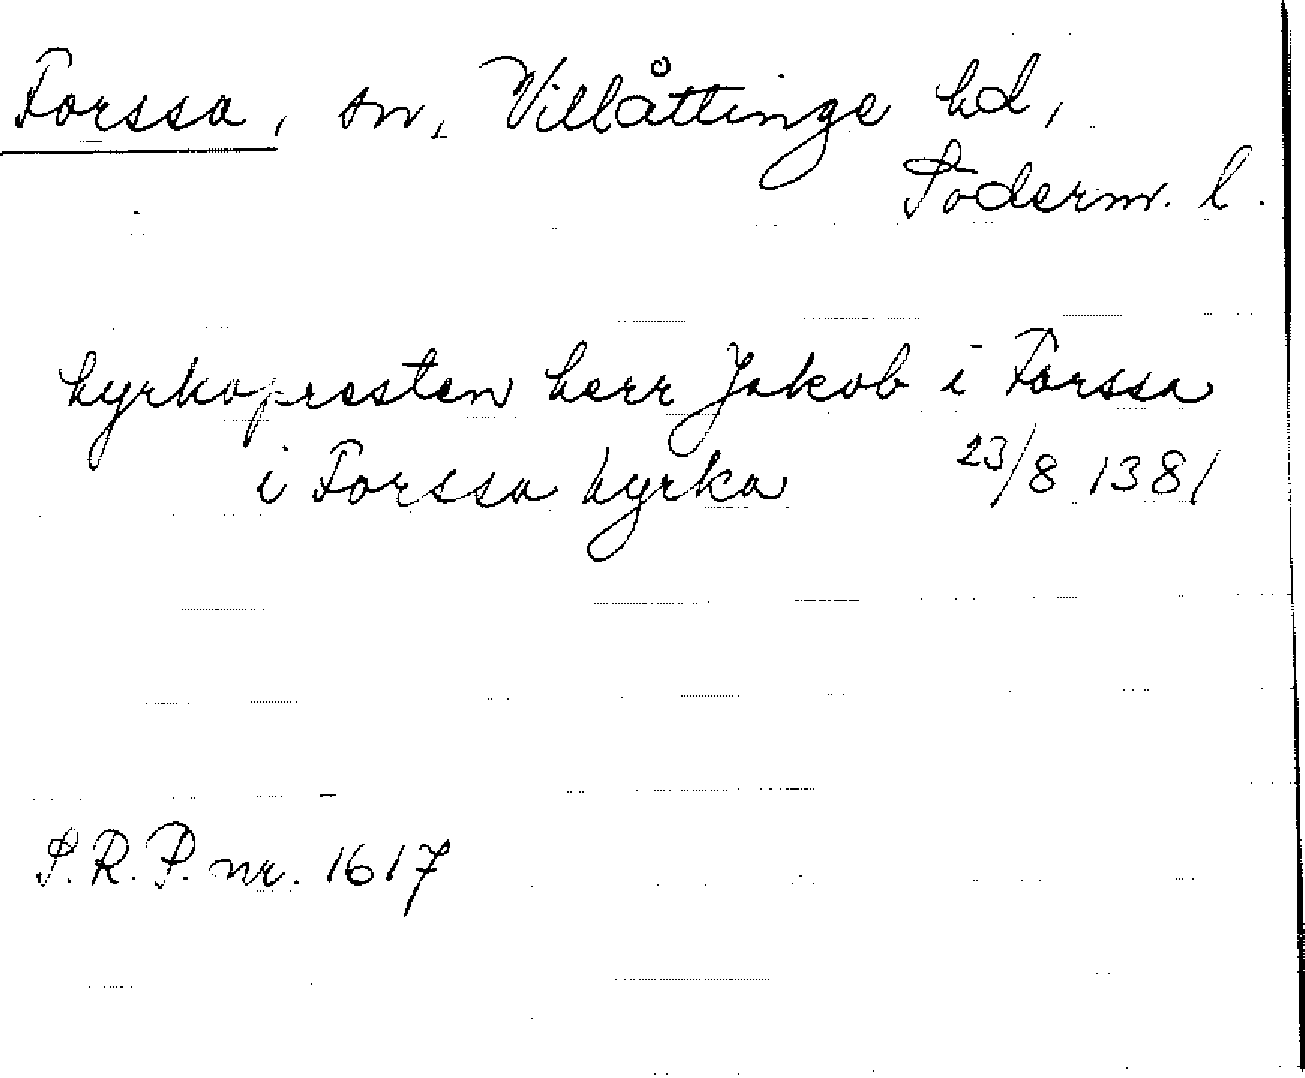 Forssa, sn, Villåttinge hd,
Söderm. l.
kyrkopresten herr Jakob i Forssa
i Forssa kyrka 23/8 1381
S.R.P. nr. 1617